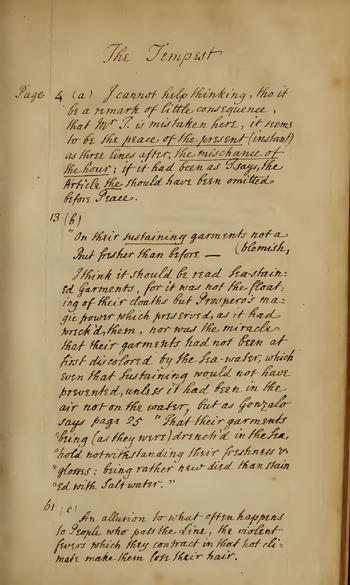 The Tempest
Page 4 (a) I cannot help thinking, tho it
be a remark of little consequence,
that Mr T. is mistaken here, it seems
to be the peace of the present (instant)
as three lines after, the mischance of
the hour; if it had been as T says, the
Article the should have been omitted
before Peace.
13 (b)
"On their sustaining garments not a
But fresher than before — (blemish,
I think it should be read Sea-stain:
ed Garments, for it was not the float:
ing of their cloaths but Prospero's ma:
gic power which preserved, as it had
wreck'd, them, nor was the miracle
that their garments had not been at
first discolored by the Sea-water, which
even that Sustaining would not have
prevented, unless it had been in the
air not on the water, but as Gonzalo
says page 25 "That their garments
"being (as they were) drench'd in the Sea,
"hold notwithstanding their freshness &
"glosses; being rather new died than stain
"ed with Salt water."
61 (c)
An allusion to what often happens
to People who pass the Line, the violent
fevers which they contract in that hot cli=
mate make them lose their hair.